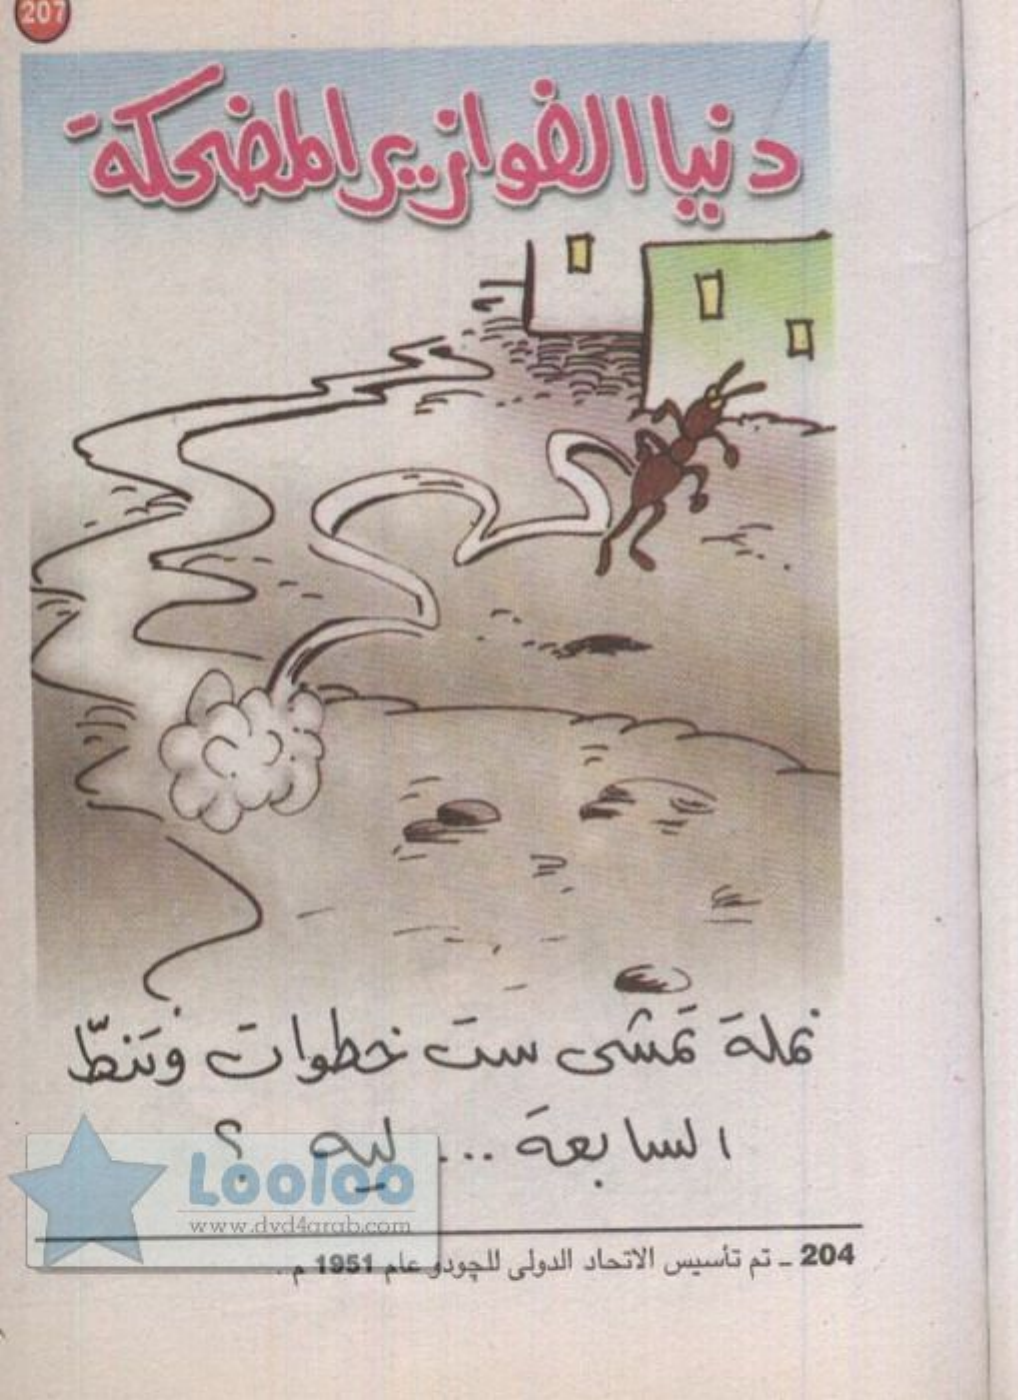 207
دنيا الفوازير المضحكة
نملة تمشى ست خطوات وتنط
السابعة ... ليه ؟
Looloo
www.dvd4arab.com
204 ـ تم تأسيس الاتحاد الدولى للچودو عام 1951 م .